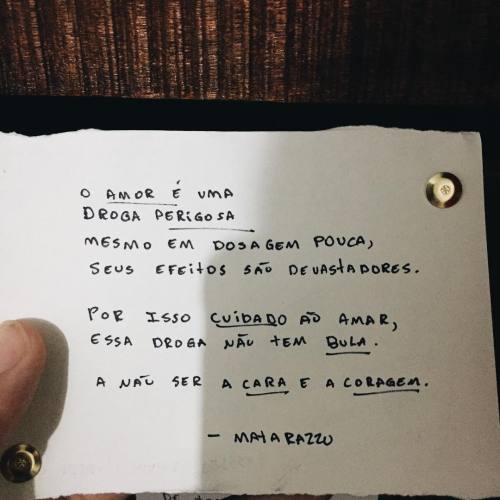 O AMOR É UMA
DROGA PERIGOSA
MESMO EM DOSAGEM POUCA,
SEUS EFEITOS SÃO DEVASTADORES.
POR ISSO CUIDADO AO AMAR,
ESSA DROGA NÃO TEM BULA.
A NÃO SER A CARA E A CORAGEM.
- MATARAZZO